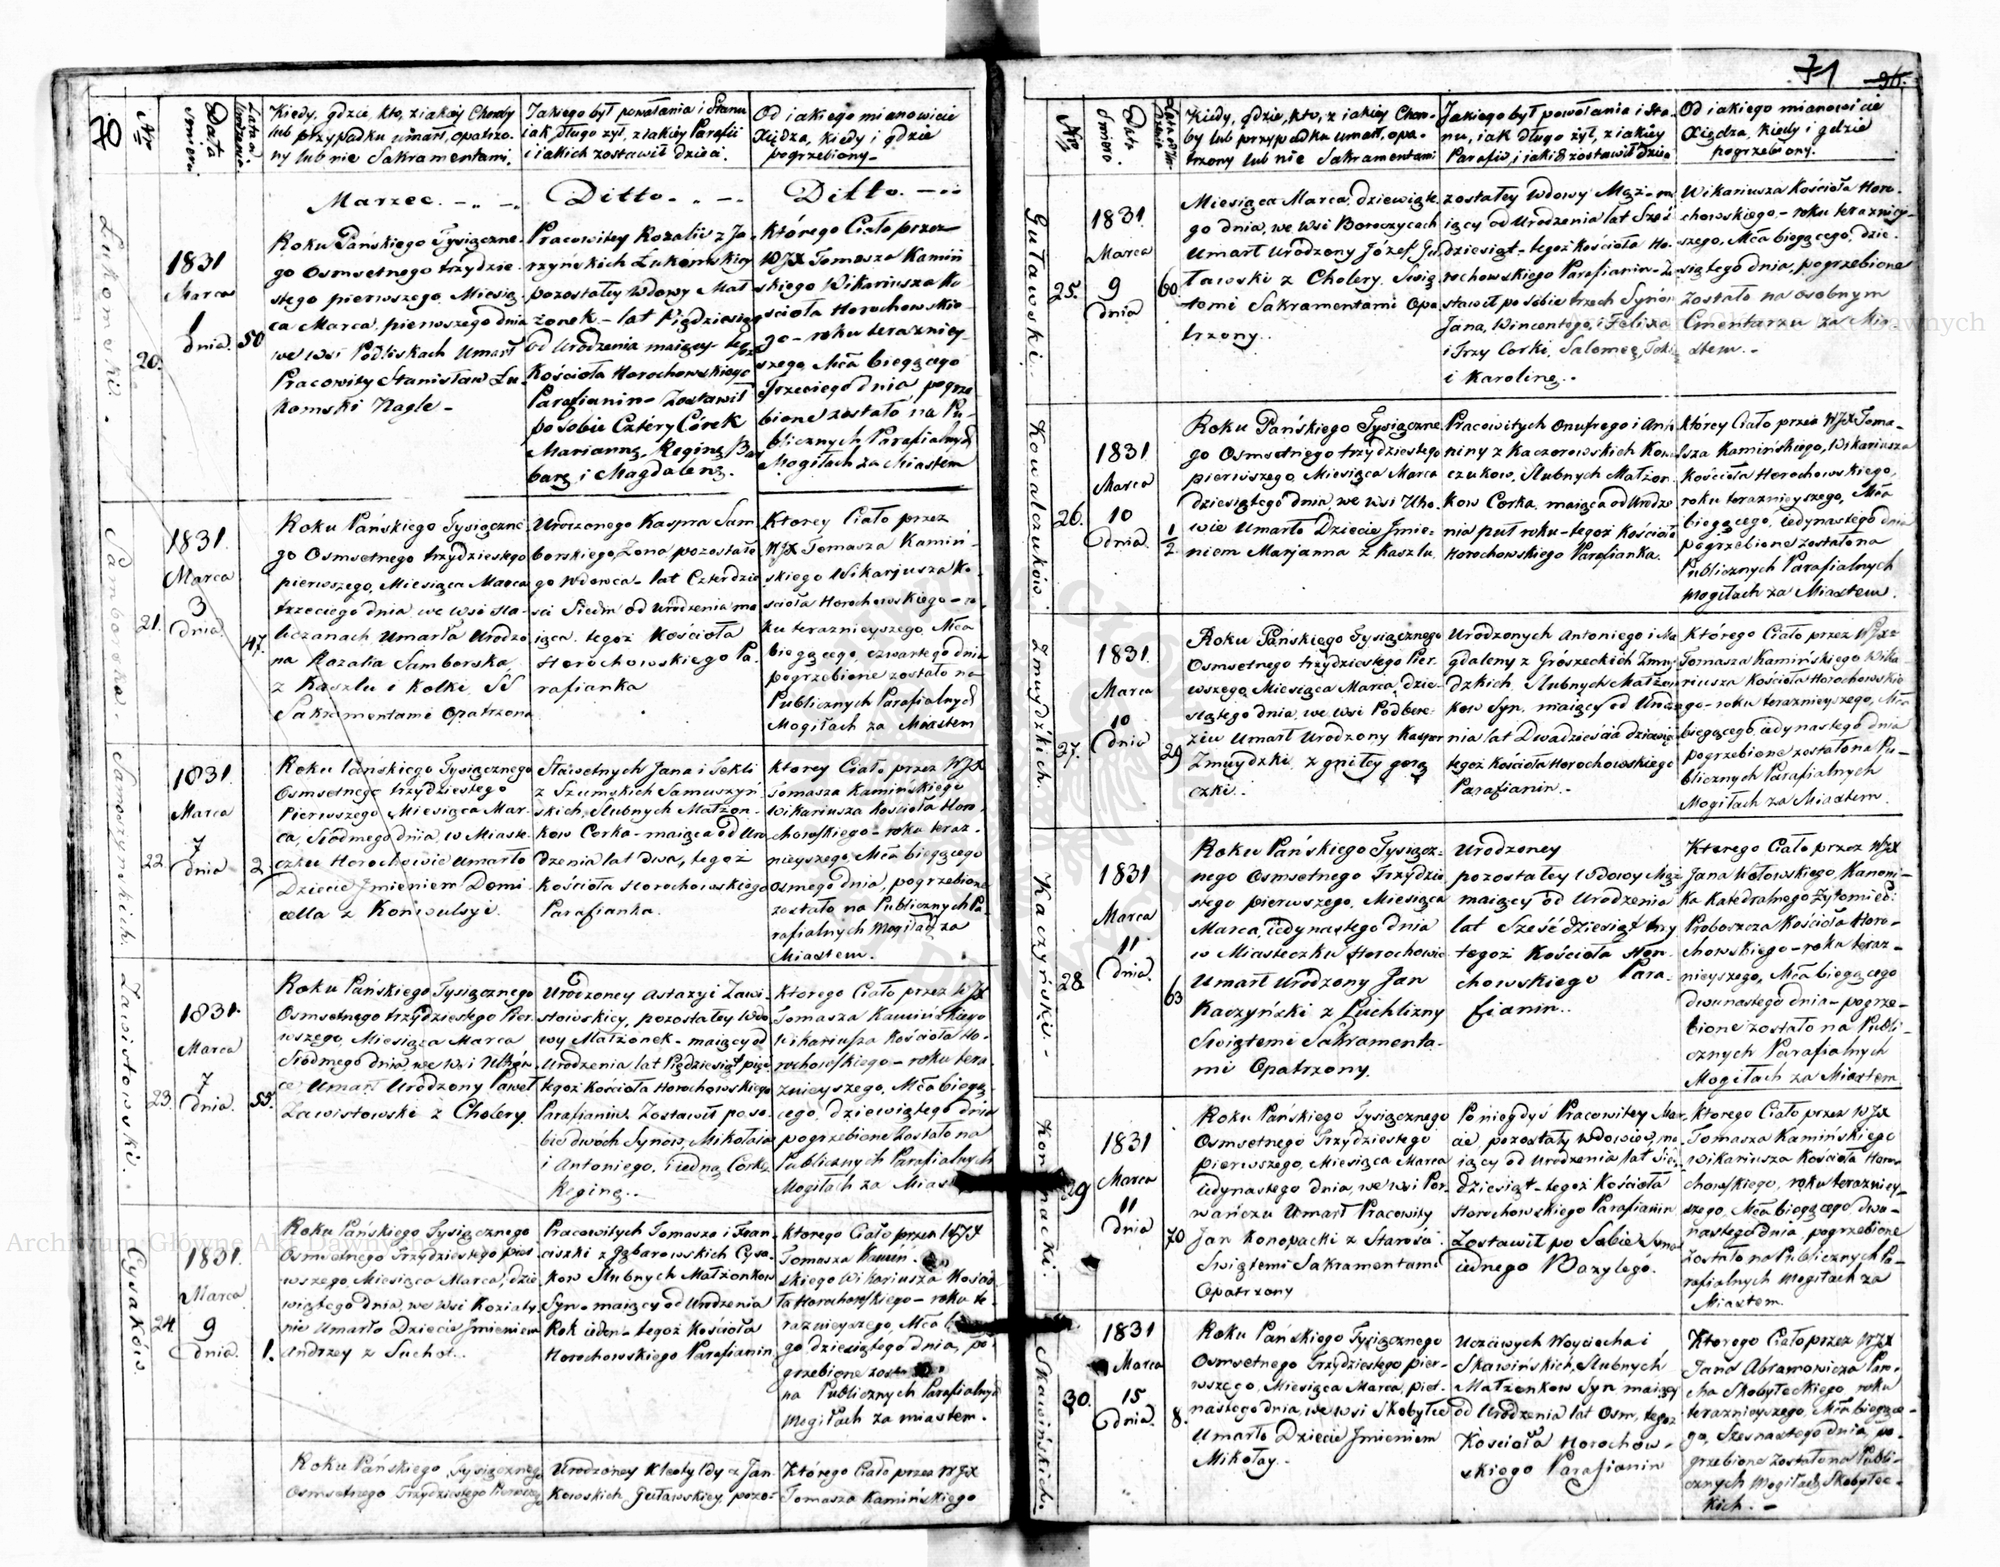 70
Nro
Data śmierci
Lata urodzenia
Kiedy, gdzie, kto, z iakiéy Choroby
lub przypadku umarł, opatrzo-
ny lub nie Sakramentami.
Jakiego był powołania i Stanu
iak długo żył, z iakiéy Parafii
i iakich zostawił dzieci.
Od iakiego mianowicie
Xiędza, kiedy i gdzie
pogrzebiony
Marzec.
Ditto.
Ditto.
Łukomski.
20.
1831
Marca
1
dnia.
50
Roku Pańskiego Tysiączne-
go Osmsetnego trzydzie-
stego pierwszego, Miesią-
ca Marca, pierwszego dnia
we wsi Podliskach Umarł
Pracowity Stanisław Łu-
komski Nagle
Pracowitey Rozalii z Ja-
rzyńskich Łukomskiey
pozostałey Wdowy Mał
żonek - lat Pięćdziesiąt
od Urodzenia maiący - tegoż
Kościoła Horochowskiego
Parafianin - Zostawił
po Sobie Cztéry Córek
Mariannę, Reginę, Bar
barę, i Magdalenę.
Którego Ciało przez
WJX Tomasza Kamiń
skiego Wikariusza Ko
ścioła Horochowskie-
go - roku terazniey-
szego, Mca biegącego
Trzeciego dnia pogrze
bione zostało na Pu-
blicznych Parafialnych
Mogiłach za Miastem
Samborska.
21.
1831.
Marca
3
dnia.
47.
Roku Pańskiego Tysiączne
go Osmsetnego trzydziestego
pierwszego, Miesiąca Marca
trzeciego dnia, we wsi Ha-
liczanach Umarła Urodzo
na Rozalia Samborska,
z Kaszlu i Kolki, SS
Sakramentami Opatrzona
Urodzonego Kaspra Sam
borskiego, Zona pozostałe
go Wdowca - lat Czterdzie
ści Siedm od Urodzenia ma
iąca. tegoż Kościoła
Horochowskiego Pa-
rafianka
Ktorey Ciało przez
WJX Tomasza Kamiń-
skiego Wikarjusza Ko-
ścioła Horochowskiego - ro-
ku teraznieyszego, Mca
biegącego, czwartego dnia
pogrzebione zostało na
Publicznych Parafialnych
Mogiłach za Miastem
22.
1831.
Marca
7
dnia
2
Roku Pańskiego Tysiącznego
Osmsetnego trzydziestego
Pierwszego, Miesiąca Mar-
ca, Siódmego dnia, w Miaste-
czku Horochowie Umarło
Dziecie Jmieniem Domi
cella z Konwulsyi.
Sławetnych Jana i Tekli
z Szumskich Samuszyń
skich, Slubnych Małżon-
kow Corka - maiąca od Uro
dzenia lat dwa, tegoż
Kościoła Horochowskiego
Parafianka.
ktorey Ciało przez WJX
Tomasza Kamińskiego
Wikariusza Kościoła Horo-
chowskiego - roku teraz-
nieyszego, Mca biegącego
osmego dnia, pogrzebione
zostało na Publicznych Pa-
rafialnych Mogiłach za
Miastem.
Zawistowski.
23.
1831.
Marca
7
dnia.
55.
Roku Pańskiego Tysiącznego
Osmsetnego trzydziestego Pier-
wszego, Miesiąca Marca
Siódmego dnia, we wsi
Umarł Urodzony Paweł
Zawistowski z Cholery.
Urodzoney Astazyi Zawi-
stowskiey, pozostałey Wdo
wy Małżonek - maiący od
Urodzenia lat Pięćdziesiąt pięć
tegoż Kościoła Horochowskiego
Parafianin. Zostawił po so-
bie dwóch Synów, Mikołaia
i Antoniego, i iedną Corkę
Reginę.
ktorego Ciało przez WJX
Tomasza Kamińskiego
Wikariusza Kościoła Ho-
rochowskiego - roku tera-
znieyszego, Mca biegą-
cego, dziewiątego dnia
pogrzebione zostało na
Publicznych Parafialnych
Mogiłach za Miast
Cysaków.
24.
1831.
Marca
9
dnia.
1.
Roku Pańskiego Tysiącznego
Osmsetnego Trzydziestego pier
wszego, Miesiąca Marca, dzie
wiątego dnia, we wsi
nie Umarło Dziecie Jmieniem
Andrzey z Suchot.
Pracowitych Tomasza i Fran-
ciszki z Cysa-
kow Slubnych Małżonkow
Syn - maiący od Urodzenia
Rok ieden - tegoż Kościoła
Horochowskiego Parafianin
ktorego Ciało przez WJX
Tomasza Kamiń-
skiego Wikariusza Kościo
ła Horochowskiego - roku te-
raznieyszego, Mca
go dziesiątego dnia, po-
grzebione
na Publicznych Parafialnych
Mogiłach za miastem.
Roku Pańskiego Tysiącznego
Osmsetnego Trzydziestego Pierwszego
Urodzoney Kleotyldy z Jan-
kowskich Guławskiey, pozo-
Którego Ciało przez WJX
Tomasza Kamińskiego
71
Nro
Data śmierci
Kiedy, gdzie, kto, z iakiéy Choro-
by lub przypadku umarł, opa-
trzony lub nie Sakramentami
Jakiego był powołania i Sta-
nu, iak długo żył, z iakiéy
Parafii, i iakich zostawił dzieci
Od iakiego mianowicie
Xiędza, kiedy i gdzie
pogrzebiony.
Guławski.
25.
1831
Marca
9
dnia
60
Miesiąca Marca, dziewiąte-
go dnia, we wsi Boroczycach
Umarł Urodzony Józef Gu
ławski z Cholery, Świę
temi Sakramentami Opa
trzony.
zostałey Wdowy Mąż - ma
iący od Urodzenia lat Sześć
dziesiąt - tegoż Kościoła Ho-
rochowskiego Parafianin - Zo
stawił po sobie trzech Synów
Jana, Wincentego, i Felixa
i Trzy Corki, Salomeę,
i Karolinę.
Wikariusza Kościoła Horo-
chowskiego - roku teraźniey-
szego, Mca biegącego, dzie-
siątego dnia, pogrzebione
Zostało na osobnym
Cmentarzu za Mia-
stem.
Kowalczuków.
26.
1831
Marca
10
dnia.
1/2
Roku Pańskiego Tysiączne
go Osmsetnego trzydziestego
pierwszego, Miesiąca Marca
dziesiątego dnia, we wsi Uho-
wie Umarło Dziecie Jmie-
niem Marjanna z Kaszlu.
Pracowitych Onufrego i An
niny z Kaczorowskich Kowal
czukow, Slubnych Małżon
kow Corka, maiąca od Urodze
nia puł roku - tegoż Kościoła
Horochowskiego Parafianka.
którey Ciało przez WJX Toma-
sza Kamińskiego, Wikariusza
Kościoła Horochowskiego,
roku teraznieyszego, Mca
biegącego, iedynastego dnia
pogrzebione zostało na
Publicznych Parafialnych
Mogiłach za Miastem.
Zmudzkich.
27.
1831.
Marca
10
dnia
29
Roku Pańskiego Tysiącznego
Osmsetnego trzydziestego Pier-
wszego, Miesiąca Marca, dzie-
siątego dnia, we wsi Podbere-
ziu Umarł Urodzony Kasper
Zmuydzki z gniłey gorą
czki.
Urodzonych Antoniego i Ma
gdaleny z Grószeckich Zmuy
dzkich, Slubnych Małżon
kow Syn, maiący od Urodze
nia lat Dwadzieścia dziewięć
tegoż Kościoła Horochowskiego
Parafianin.
którego Ciało przez WJX
Tomasza Kamińskiego Wika-
riusza Kościoła Horochowskie
go - roku teraznieyszego, Mca
biegącego, iedynastego dnia
pogrzebione zostało na Pu-
blicznych Parafialnych
Mogiłach za Miastem.
Kaczyński.
28.
1831
Marca
11
dnia.
63
Roku Pańskiego Tysiącz-
nego Osmsetnego Trzydzie
stego pierwszego, Miesiąca
Marca, iedynastego dnia
w Miasteczku Horochowie
Umarł Urodzony Jan
Kaczyński z Puchlizny
Swiętemi Sakramenta-
mi Opatrzony.
Urodzoney
pozostałey Wdowy Mąż
maiący od Urodzenia
lat Sześćdziesiąt trzy
tegoż Kościoła Horo-
chowskiego Para-
fianin.
Ktorego Ciało przez WJX
Jana Wołowskiego, Kanoni-
ka Katedralnego
Proboszcza Kościoła Horo-
chowskiego - roku teraz-
nieyszego, Mca biegącego
dwunastego dnia - pogrze-
bione zostało na Publi-
cznych Parafialnych
Mogiłach za Miastem
Konopacki.
29
1831
Marca
11
dnia
70
Roku Pańskiego Tysiącznego
Osmsetnego Trzydziestego
pierwszego, Miesiąca Marca
iedynastego dnia, we wsi Por-
wańczu Umarł Pracowity
Jan Konopacki z Starości
Swiętemi Sakramentami
Opatrzony
Po niegdyś Pracowitey
pozostały Wdowiec, ma
iący od Urodzenia lat Siedm
dziesiąt - tegoż Kościoła
Horochowskiego Parafianin
Zostawił po Sobie Syna
iednego Bazylego.
ktorego Ciało przez WJX
Tomasza Kamińskiego
Wikariusza Kościoła Horo-
chowskiego, roku teraźniey-
szego, Mca biegącego dwu-
nastego dnia, pogrzebione
Zostało na Publicznych Pa-
rafialnych Mogiłach za
Miastem.
Skawińskich.
30.
1831
Marca
15
dnia.
8.
Roku Pańskiego Tysiącznego
Osmsetnego Trzydziestego pier-
wszego, Miesiąca Marca, piet-
nastego dnia, we wsi Skobyłce
Umarło Dziecie Jmieniem
Mikołay.
Uczciwych Woyciecha i
Skawińskich, Slubnych
Małżonkow Syn, maiący
od Urodzenia lat Osm, tegoż
Kościoła Horochow-
skiego Parafianin
Ktorego Ciało przez WJX
Jana Abramowicza Paro-
cha Skobyłeckiego, roku
teraznieyszego, Mca biegące-
go, Szesnastego dnia, po-
grzebione zostało na Publi-
cznych Mogiłach Skobyłec-
kich.
Archiwum Główne Akt Dawnych
Archiwum Główne Akt Dawnych